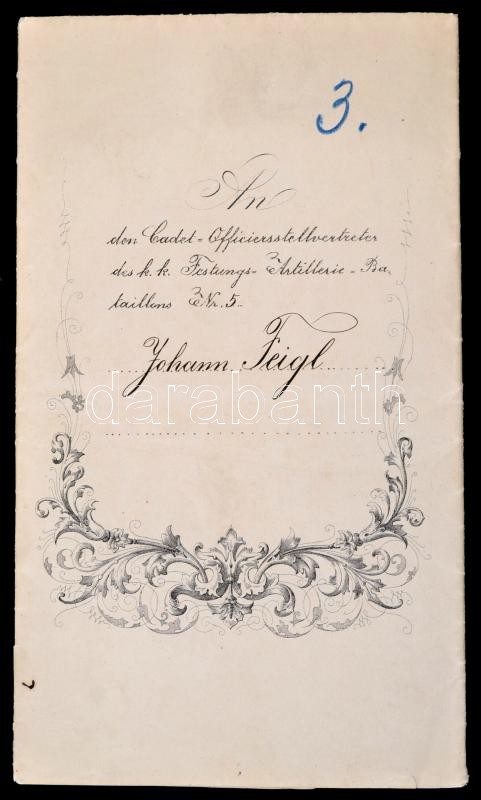 3.
An
den Cadet-Officiersstellvertreter
des k. k. Festungs-Artillerie-Ba-
taillons Nr. 5.
Johann Feigl
darabanth